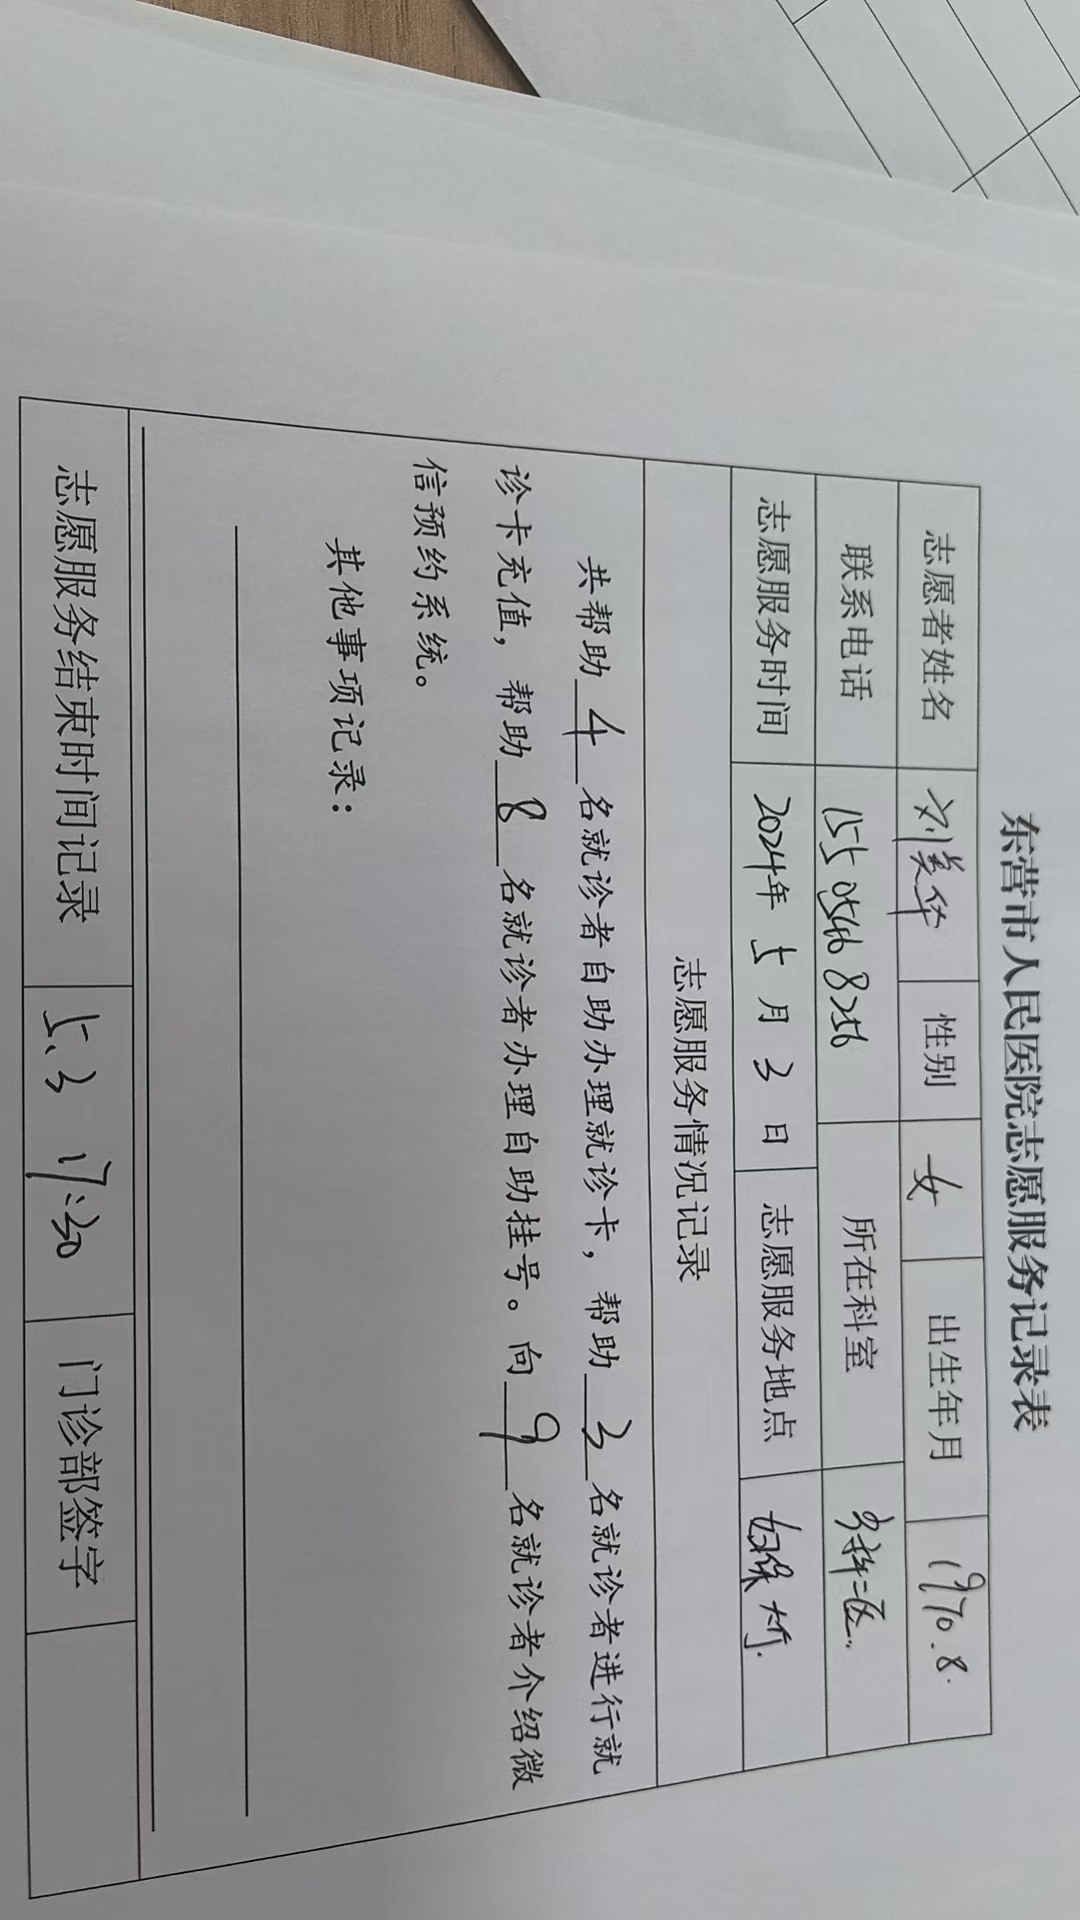 东营市人民医院志愿服务记录表
志愿者姓名 刘美华 性别 女 出生年月 1970.8.
联系电话 155 0546 8256 所在科室
志愿服务时间 2024年 5 月 3 日 志愿服务地点 妇保大厅.
志愿服务情况记录
共帮助 4 名就诊者自助办理就诊卡，帮助 3 名就诊者进行就
诊卡充值，帮助 8 名就诊者办理自助挂号。向 9 名就诊者介绍微
信预约系统。
其他事项记录：
志愿服务结束时间记录 5.3 17:30 门诊部签字